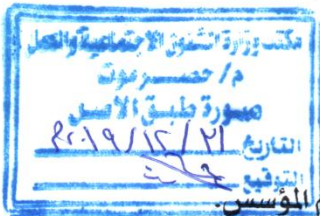 مكتب وزارة الشئون الاجتماعية والعمل
م/ حضرموت
صورة طبق الاصل
التاريخ ٢٠١٩/١٢/٢١
التوقيع
المؤسس.